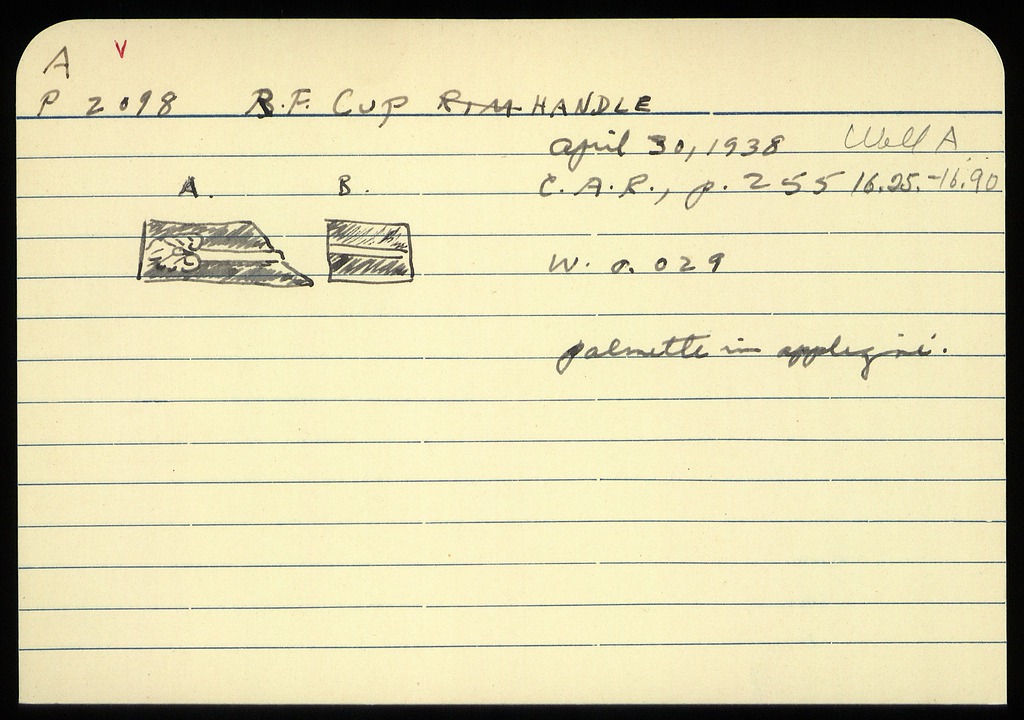 A v
P 2098 B.F. CUP RIM HANDLE
april 30, 1938 Well A
C.A.R., p. 255 16.25.-16.90
A. B.
W. 0.029
palmette in